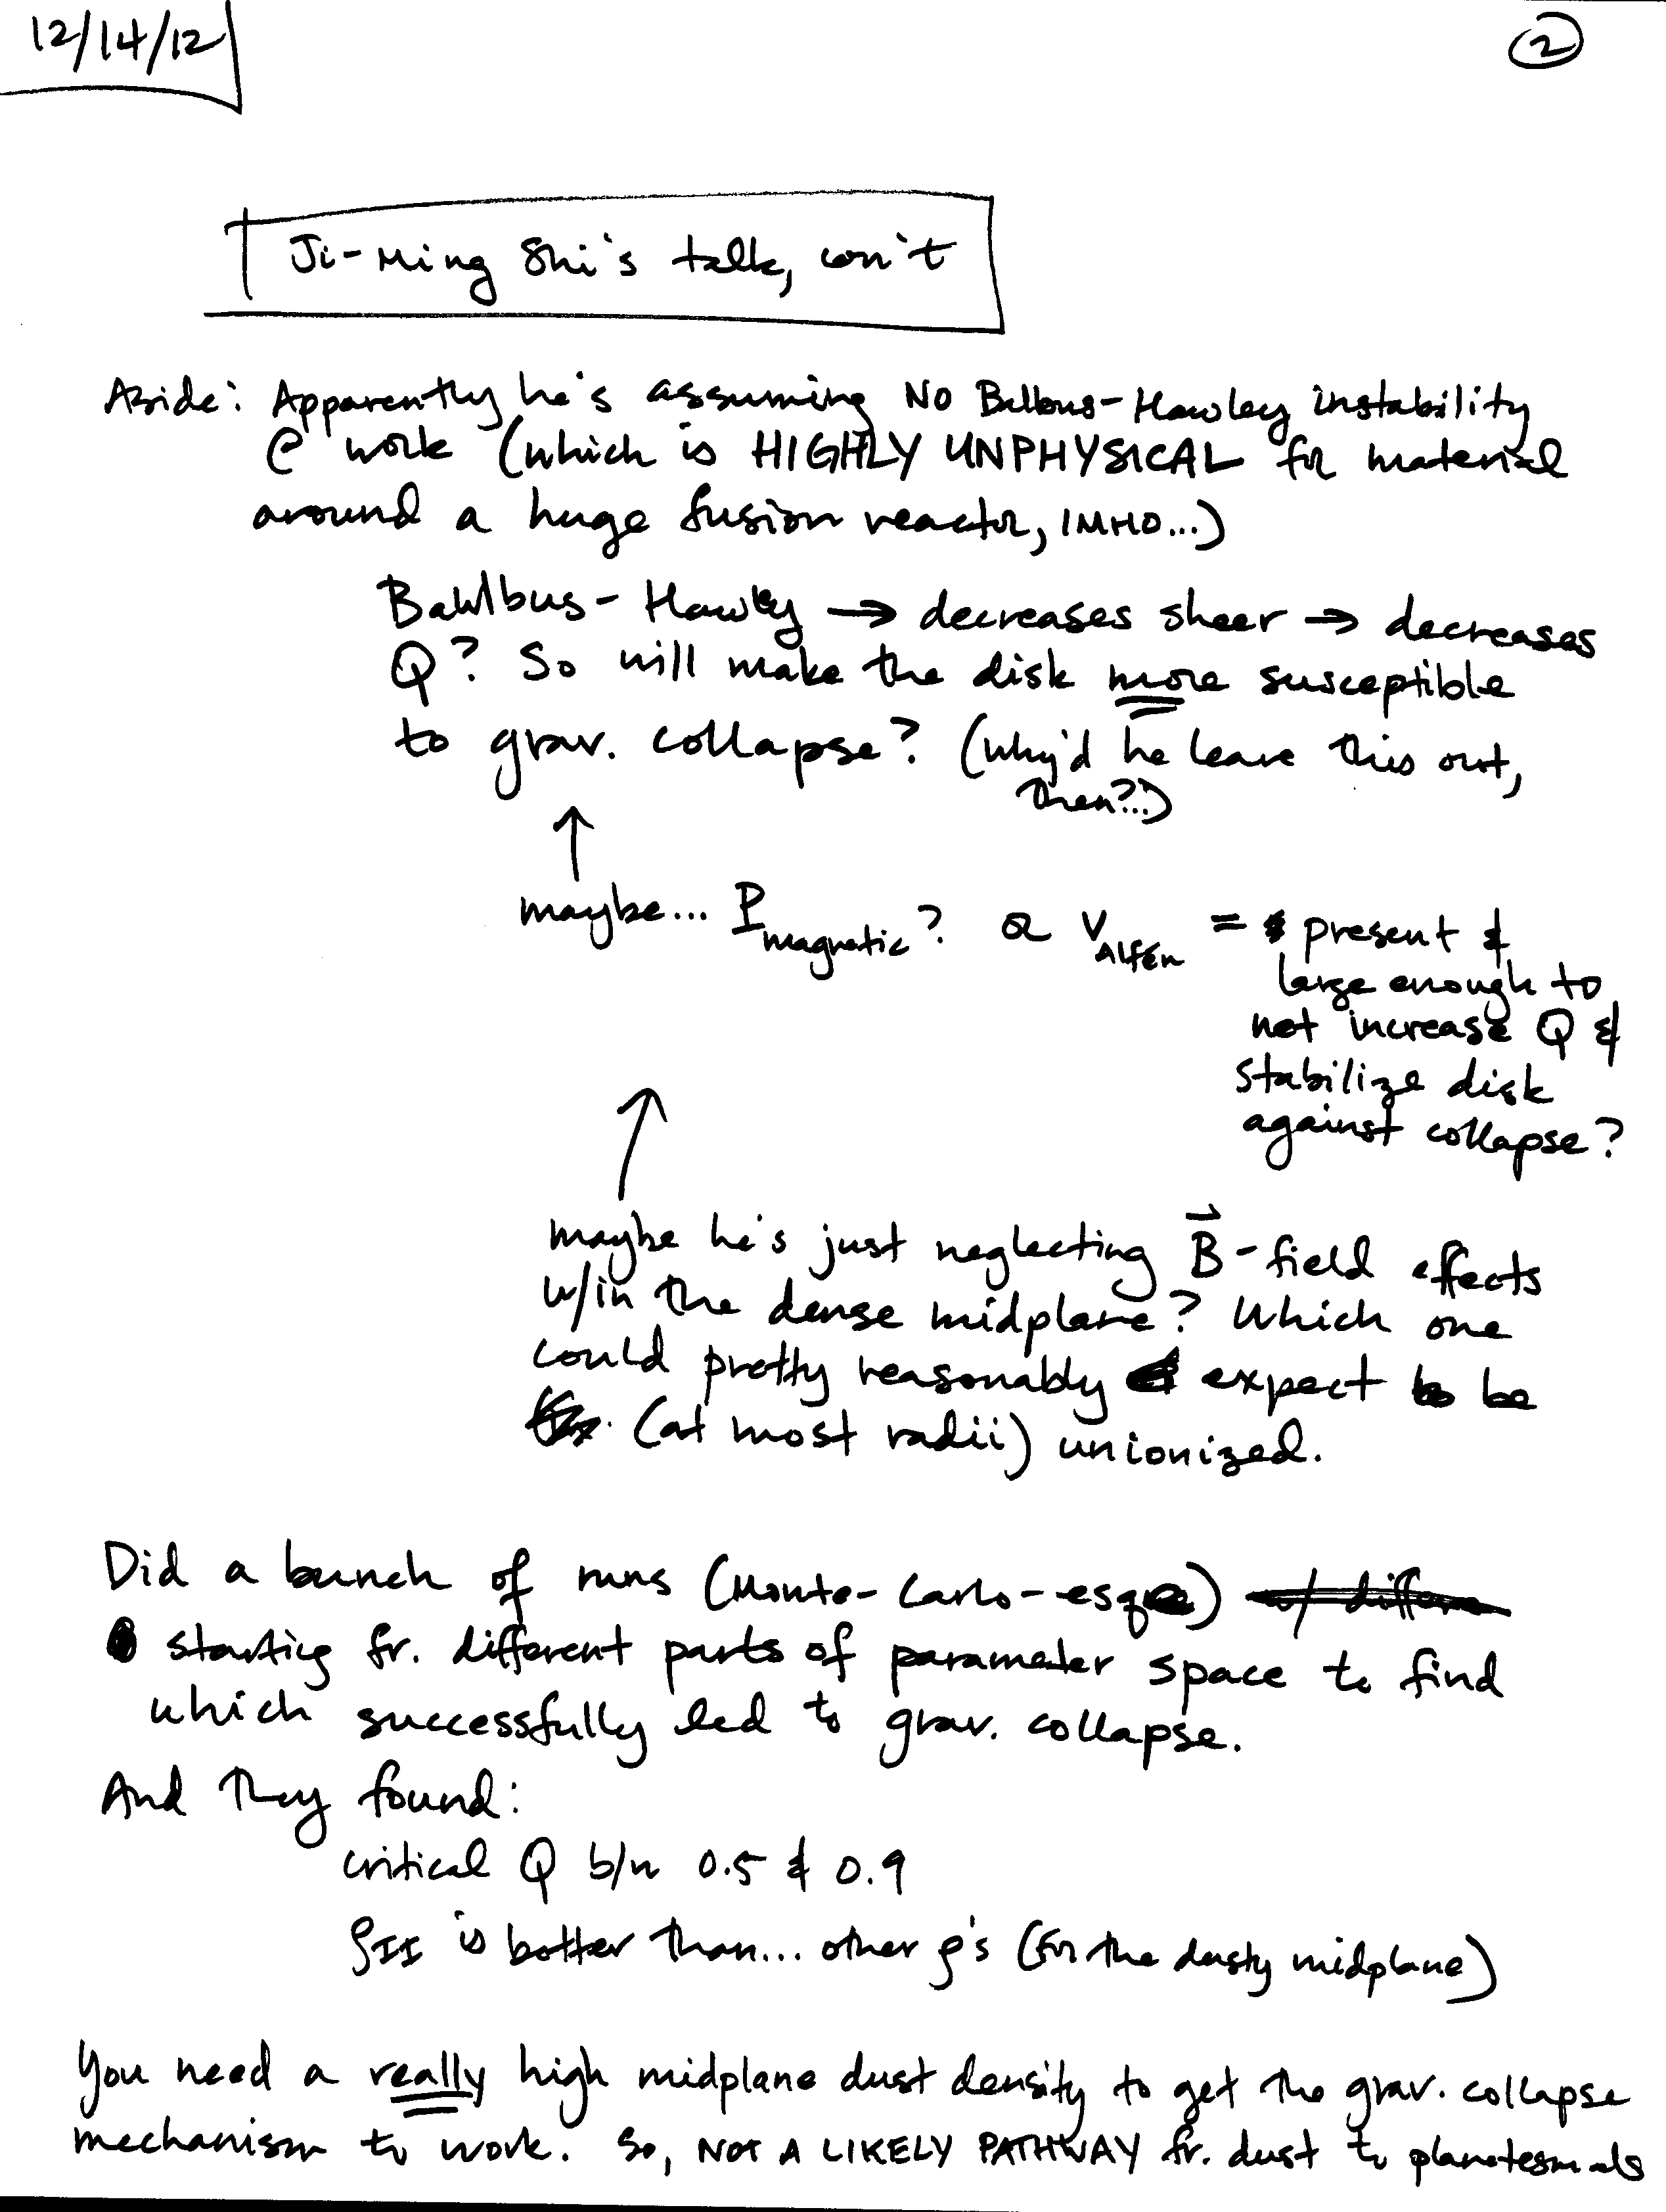 12/14/12
2
Ji-Ming Shi's talk, con't
Aside: Apparently he's assuming NO Balbus-Hawley instability
@ work (which is HIGHLY UNPHYSICAL for material
around a huge fusion reactor, IMHO...)
Bahlbus-Hawley → decreases sheer → decreases
Q? So will make the disk more susceptible
to grav. collapse? (why'd he leave this out,
then?..)
↑
maybe... P magnetic? α V Alfén = present &
large enough to
not increase Q &
stabilize disk
against collapse?
↑
maybe he's just neglecting B-field effects
w/in the dense midplane? Which one
could pretty reasonably expect to be
(at most radii) unionized.
Did a bunch of runs (Monte-Carlo-esque) w/ differe
starting fr. different parts of parameter space to find
which successfully led to grav. collapse.
And they found:
critical Q b/n 0.5 & 0.9
ρII is better than... other ρ's (for the dusty midplane)
You need a really high midplane dust density to get the grav. collapse
mechanism to work. So, NOT A LIKELY PATHWAY fr. dust to planetesmals